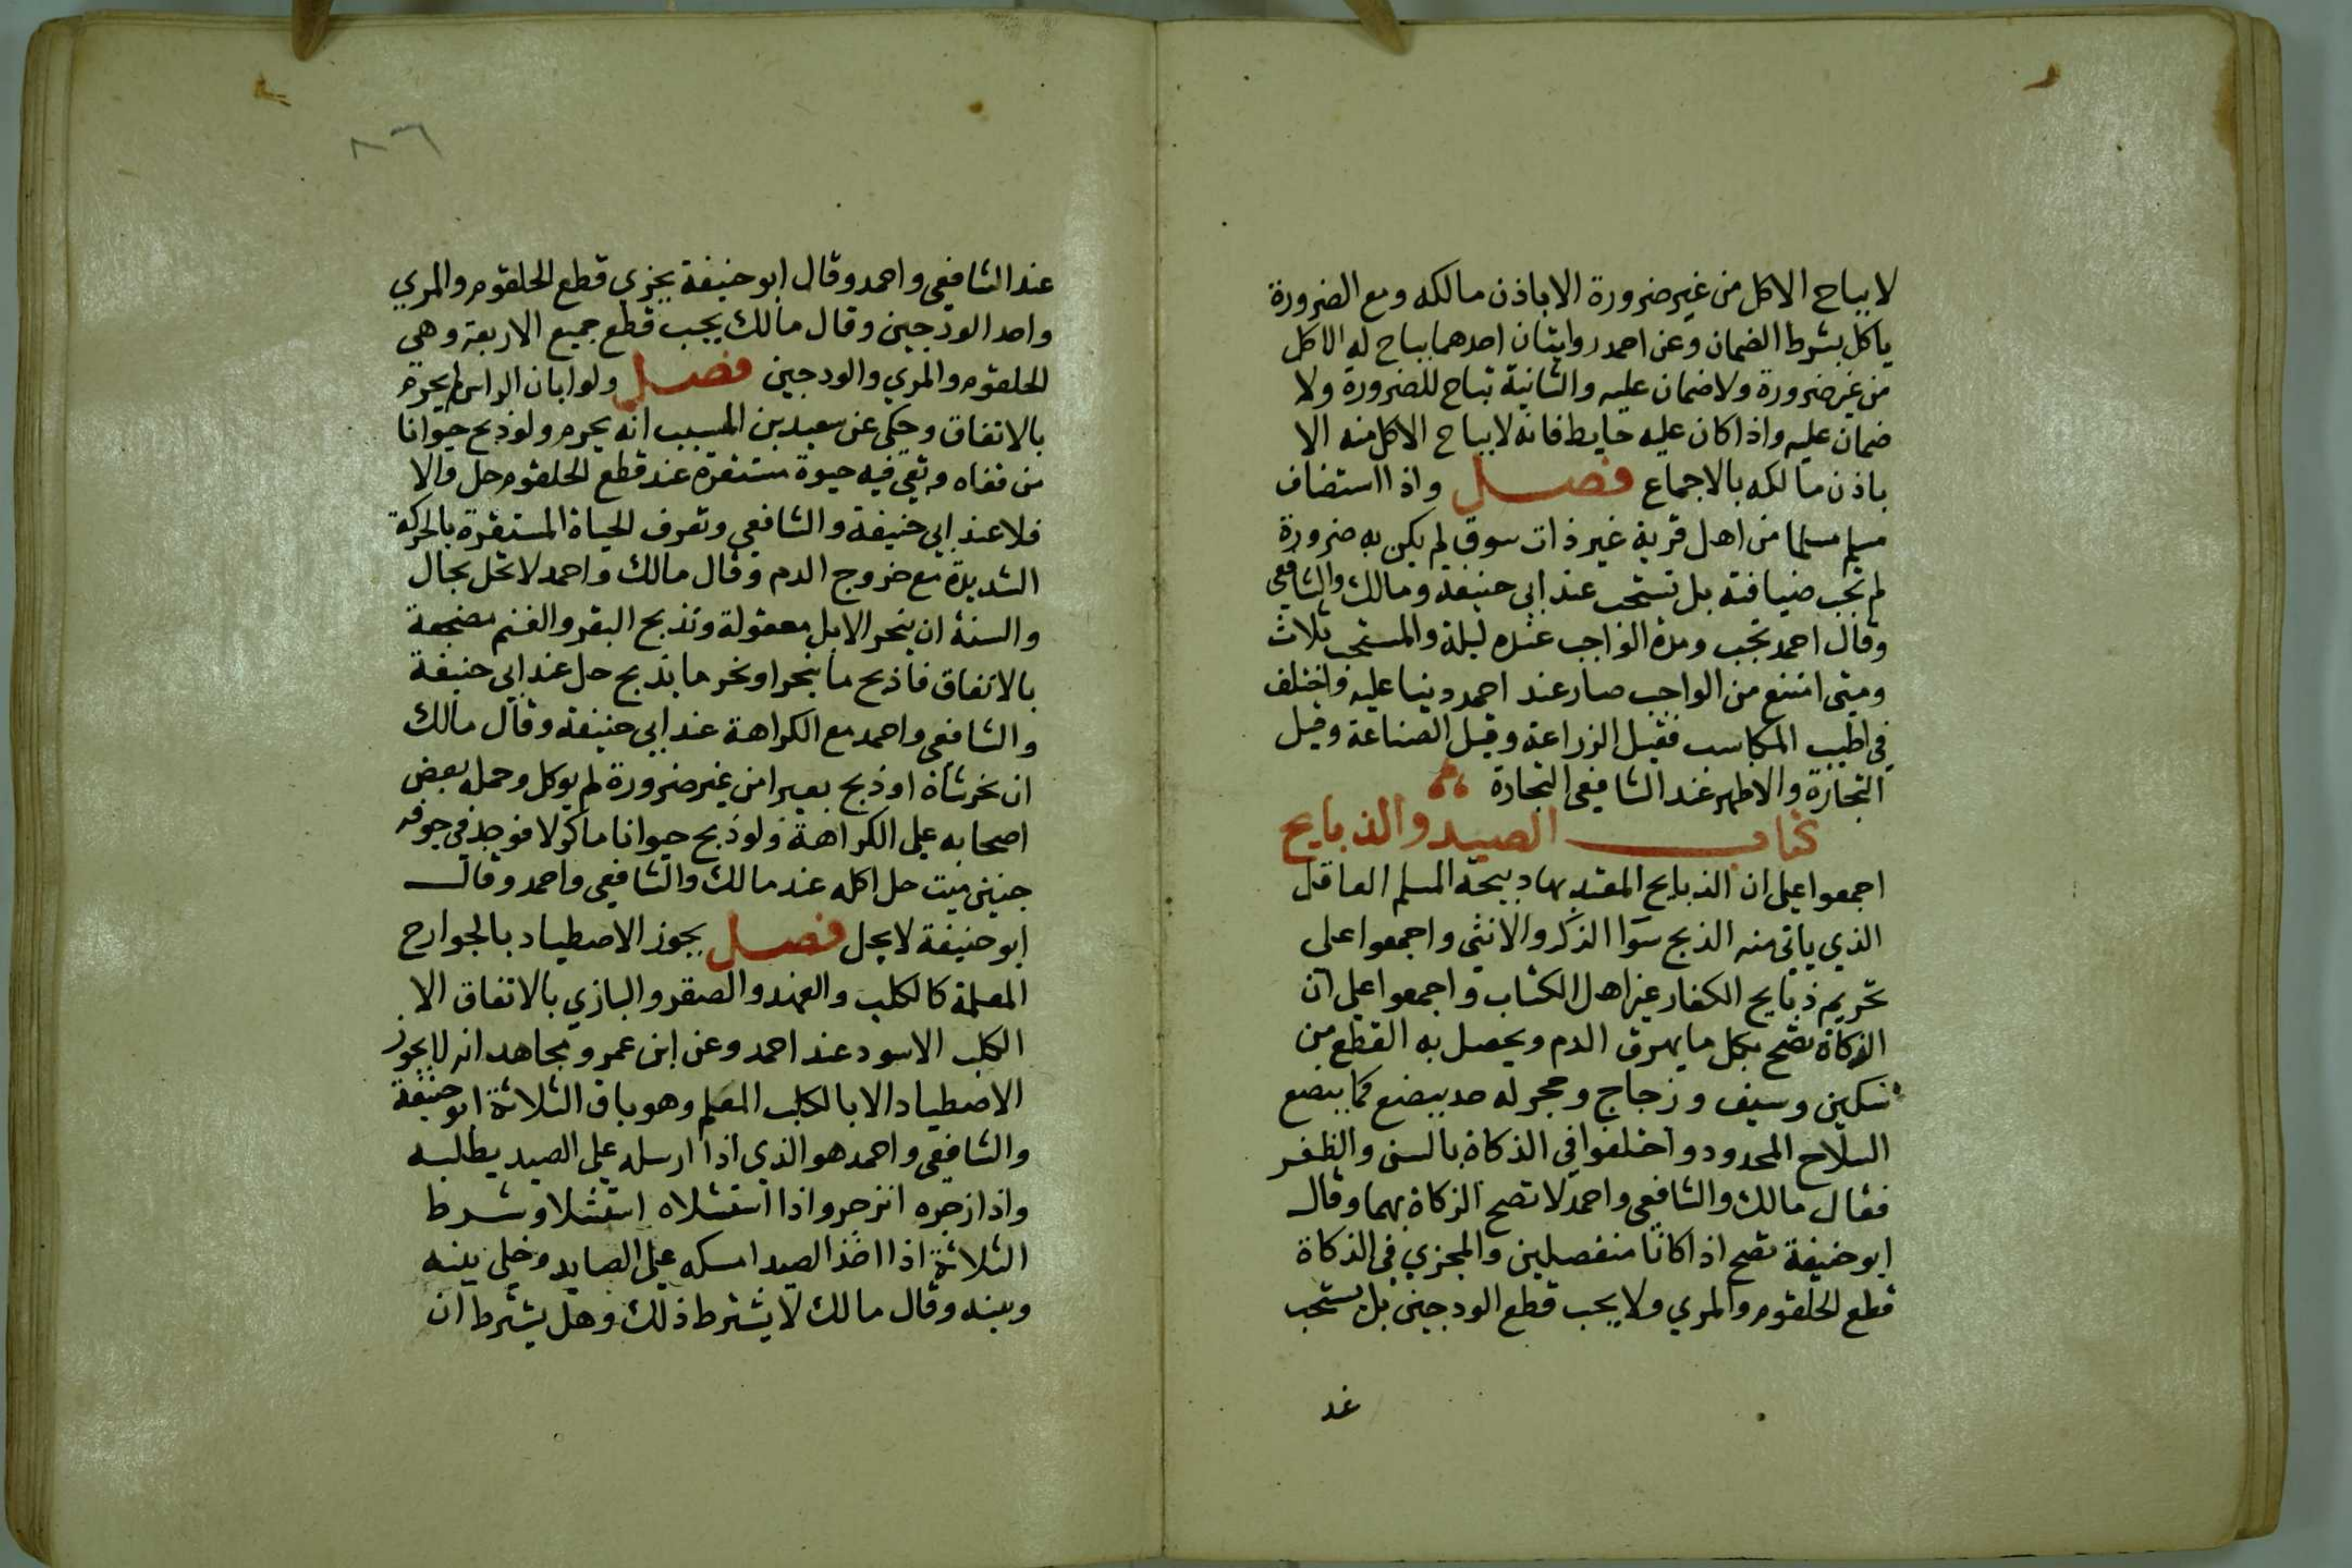 لا يباح الاكل من غير ضرورة الا باذن مالكه ومع الضرورة
ياكل بشرط الضمان وعن احمد روايتان احدهما يباح له الاكل
من غير ضرورة ولا ضمان عليه والثانية تباح للضرورة ولا
ضمان عليه واذا كان عليه حايط فانه لا يباح الاكل منه الا
باذن مالكه بالاجماع فصل واذا استضاف
مسلم مسلما من اهل قرية غير ذات سوق لم يكن به ضرورة
لم تجب ضيافته بل تستحب عند ابي حنيفة ومالك والشافعي
وقال احمد تجب ومدة الواجب عنده ليلة والمستحب ثلاث
ومتى امتنع من الواجب صار عند احمد دينا عليه واختلف
في اطيب المكاسب فقيل الزراعة وقيل الصناعة وقيل
التجارة والاظهر عند الشافعي التجارة
كتاب الصيد والذبايح
اجمعوا على ان الذبايح المعتد بها دبيحة المسلم العاقل
الذي ياتي منه الذبح سوا الذكر والانثى واجمعوا على
تحريم ذبايح الكفار غير اهل الكتاب واجمعوا على ان
الذكاة تصح بكل ما يهرق الدم ويحصل به القطع من
سكين وسيف وزجاج وحجر له حد يبضع كما يبضع
السلاح المحدود واختلفوا في الذكاة بالسن والظفر
فقال مالك والشافعي واحمد لا تصح الزكاة بهما وقال
ابو حنيفة تصح اذا كانا منفصلين والمجزي في الذكاة
قطع الحلقوم والمري ولا يجب قطع الودجين بل يستحب
عند
٨٦
عند الشافعي واحمد وقال ابو حنيفة يجزي قطع الحلقوم والمري
واحد الودجين وقال مالك يجب قطع جميع الاربعة وهي
الحلقوم والمري والودجين فصل ولو ابان الراس لم يحرم
بالاتفاق وحكى عن سعيد بن المسيب انه يحرم ولو ذبح حيوانا
من قفاه وبقي فيه حيوة مستقرة عند قطع الحلقوم حل والا
فلا عند ابي حنيفة والشافعي وتعرف الحياة المستقرة بالحركة
الشديدة مع خروج الدم وقال مالك واحمد لا تحل بحال
والسنة ان ينحر الابل معقولة وتذبح البقر والغنم مضجعة
بالاتفاق فاذبح ما ينحر او نحر ما يذبح حل عند ابي حنيفة
والشافعي واحمد مع الكراهة عند ابي حنيفة وقال مالك
ان نحر شاة او ذبح بعيرا من غير ضرورة لم يوكل وحمله بعض
اصحابه على الكراهة ولو ذبح حيوانا ماكولا فوجد في جوفه
جنين ميت حل اكله عند مالك والشافعي واحمد وقال
ابو حنيفة لا يحل فصل يجوز الاصطياد بالجوارح
المعلمة كالكلب والفهد والصقر والبازي بالاتفاق الا
الكلب الاسود عند احمد وعن ابن عمر ومجاهد انه لا يجوز
الاصطياد الا بالكلب المعلم وهو باق الثلاثة ابو حنيفة
والشافعي واحمد هو الذي اذا ارسله على الصيد يطلبه
واذا زجره انزجر واذا استشلاه استشلا وشرط
الثلاثة اذا اخذ الصيد امسكه على الصايد وخلى بينه
وبينه وقال مالك لا يشترط ذلك وهل يشترط ان